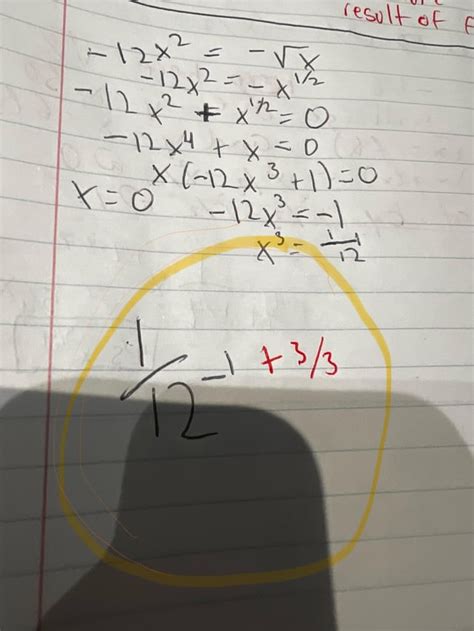 result of
-12x² = -√x
-12x² = -x^1/2
-12x² + x^1/2 = 0
-12x⁴ + x = 0
x(-12x³ + 1) = 0
x = 0 -12x³ = -1
x³ = 1/12
1/12 -1 + 3/3